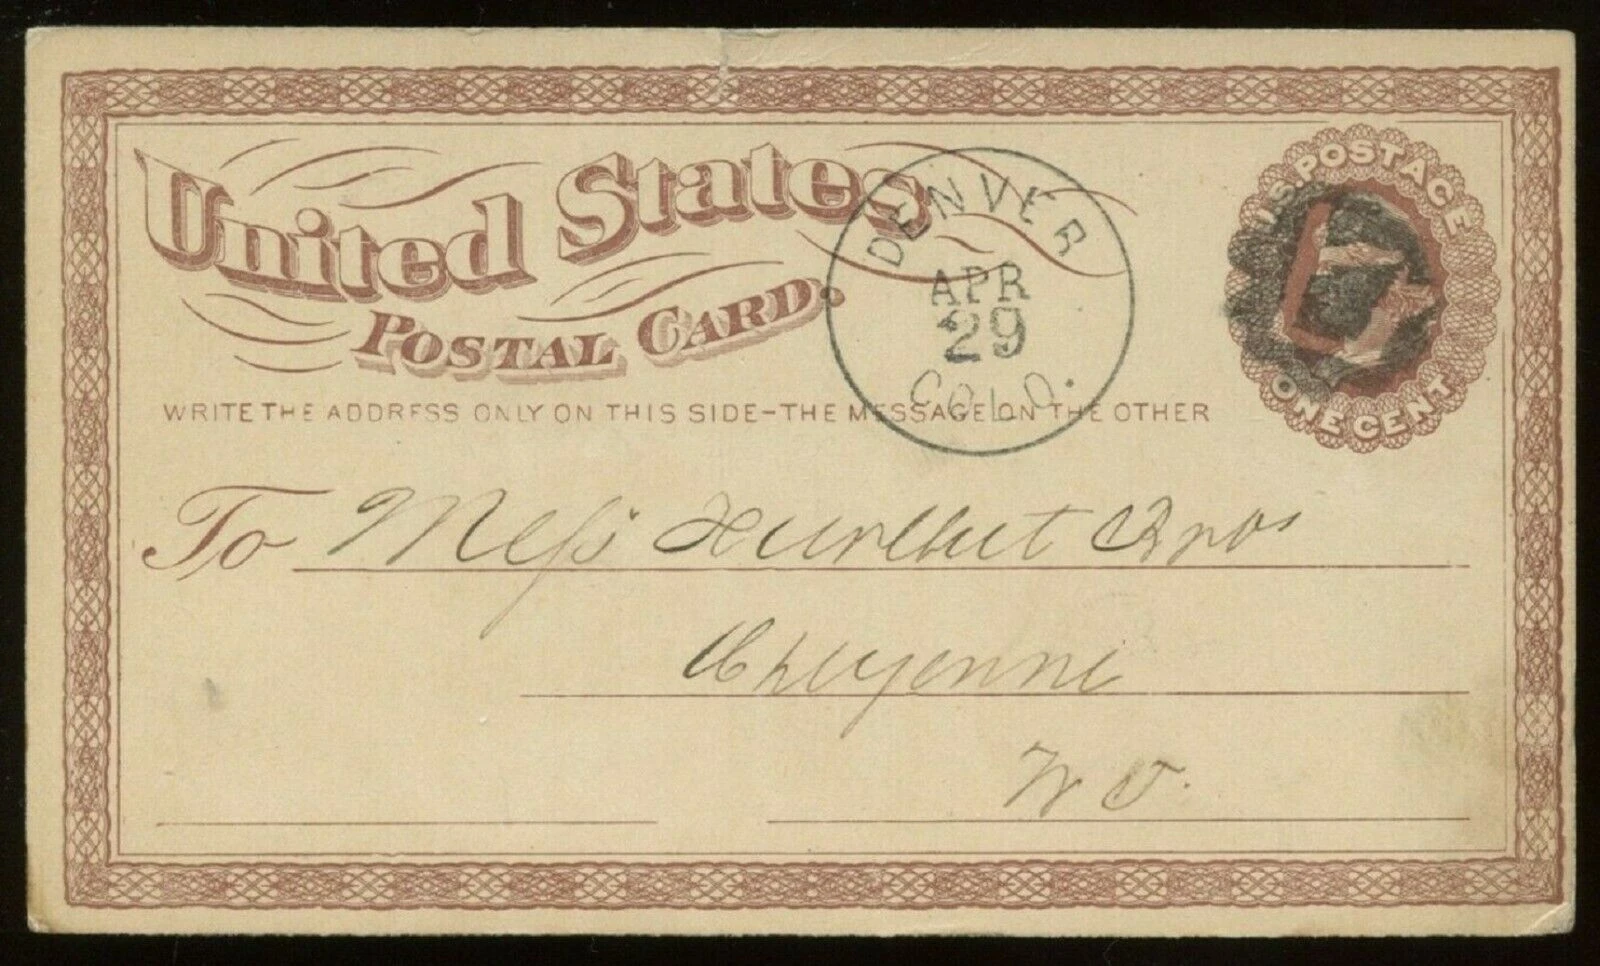 United States
POSTAL CARD.
U.S. POSTAGE
ONE CENT
DENVER
APR
29
COLO.
WRITE THE ADDRESS ONLY ON THIS SIDE-THE MESSAGE ON THE OTHER
To Mess Hurlbut Bros
Cheyenne